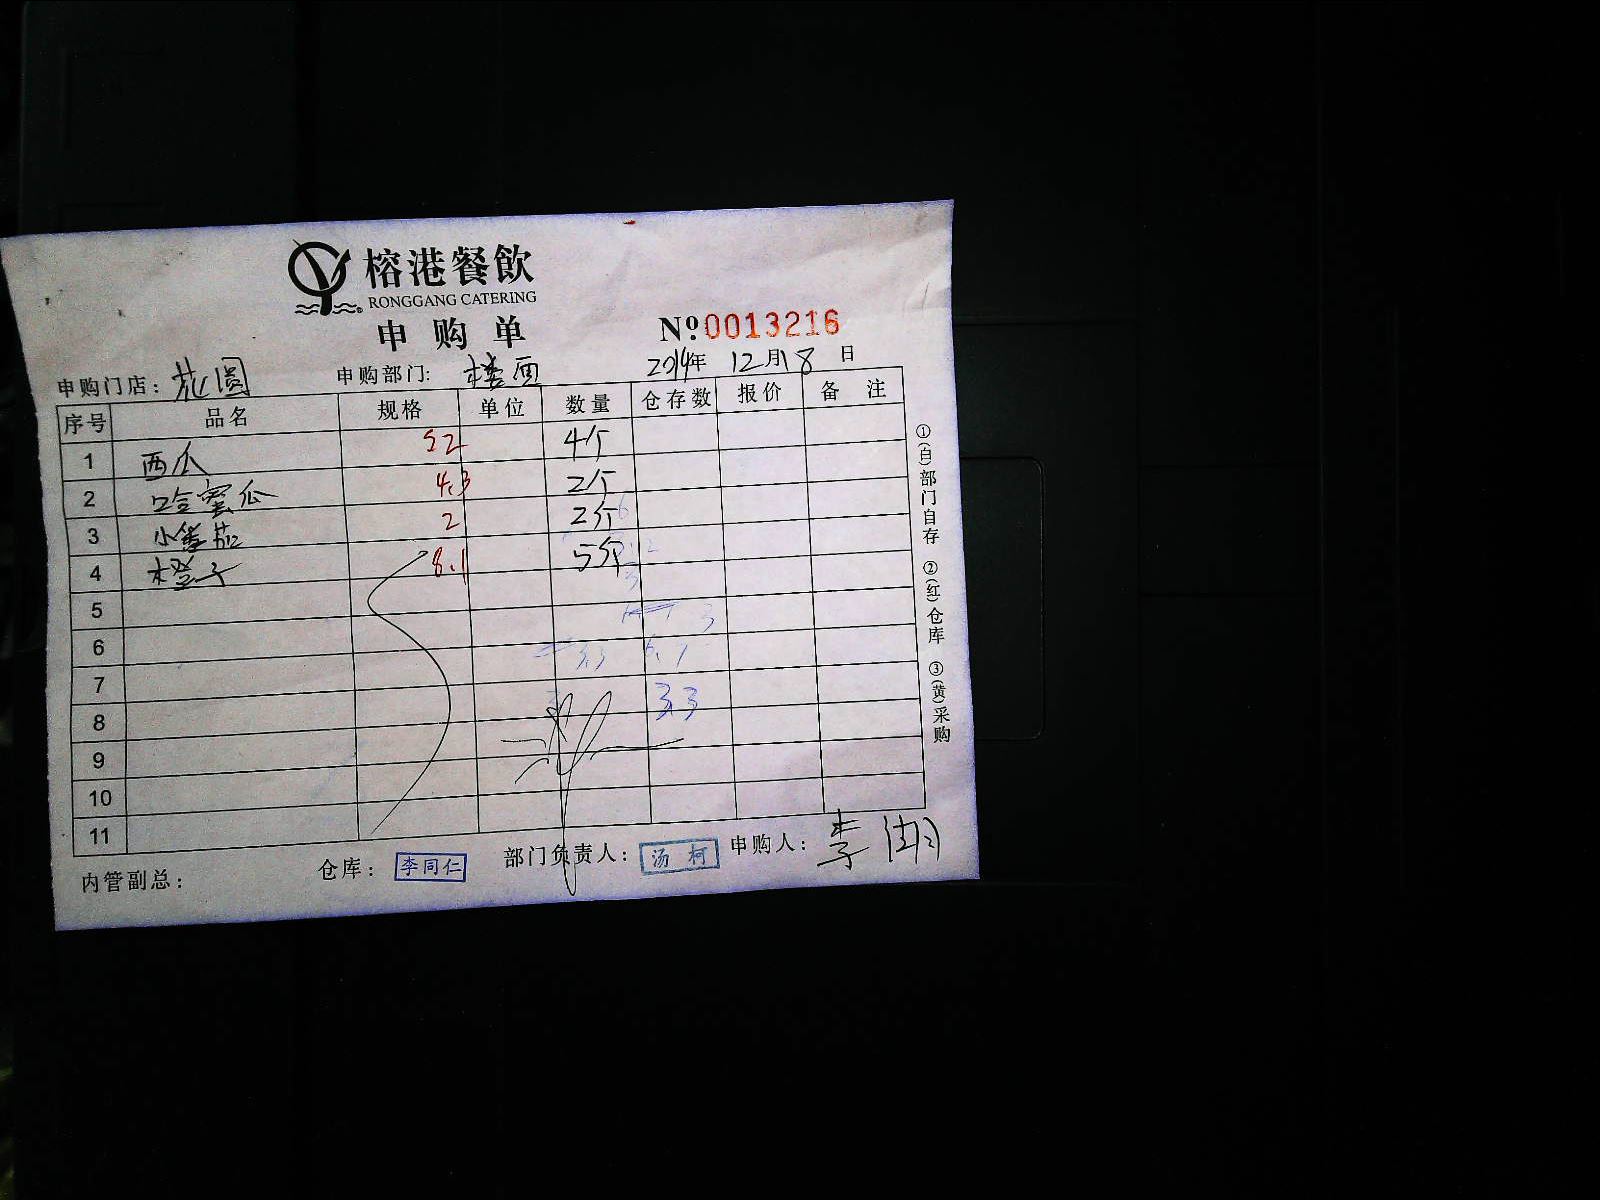 榕港餐飲
RONGGANG CATERING
申购单
№0013216
申购门店：花園 申购部门：楼面 2014年12月18日
序号 品名 规格 单位 数量 仓存数 报价 备注
1 西瓜 52 4个
2 哈蜜瓜 4.3 2个
3 小番茄 2 2个
4 橙子 8.1 5个
5
6
7
8
9
10
11
内管副总： 仓库：李同仁 部门负责人：汤柯 申购人：李湖
①(白)部门自存 ②(红)仓库 ③(黄)采购